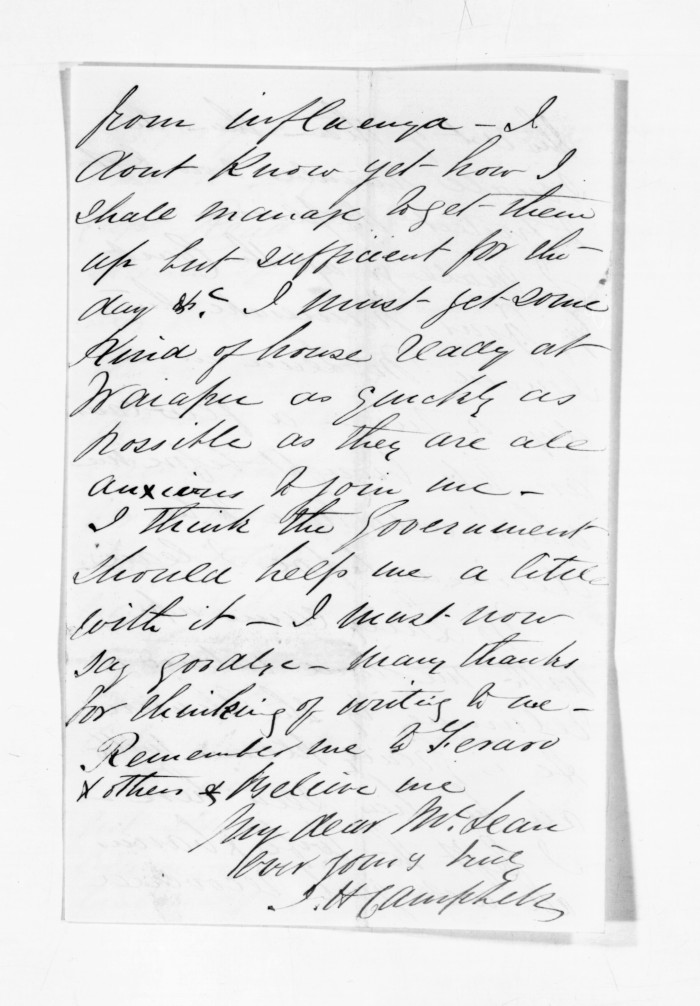 from influenza - I
dont know yet how I
shall manage to get them
up but sufficient for the
day &c. I must get some
kind of house ready at
Waiapu as quickly as
possible as they are all
anxious to join me -
I think the Government
should help me a little
with it - I must now
say goodbye - many thanks
for thinking of writing to me -
Remember me to
& others & believe me
My dear McLean
Ever yours truly
J. H Campbell